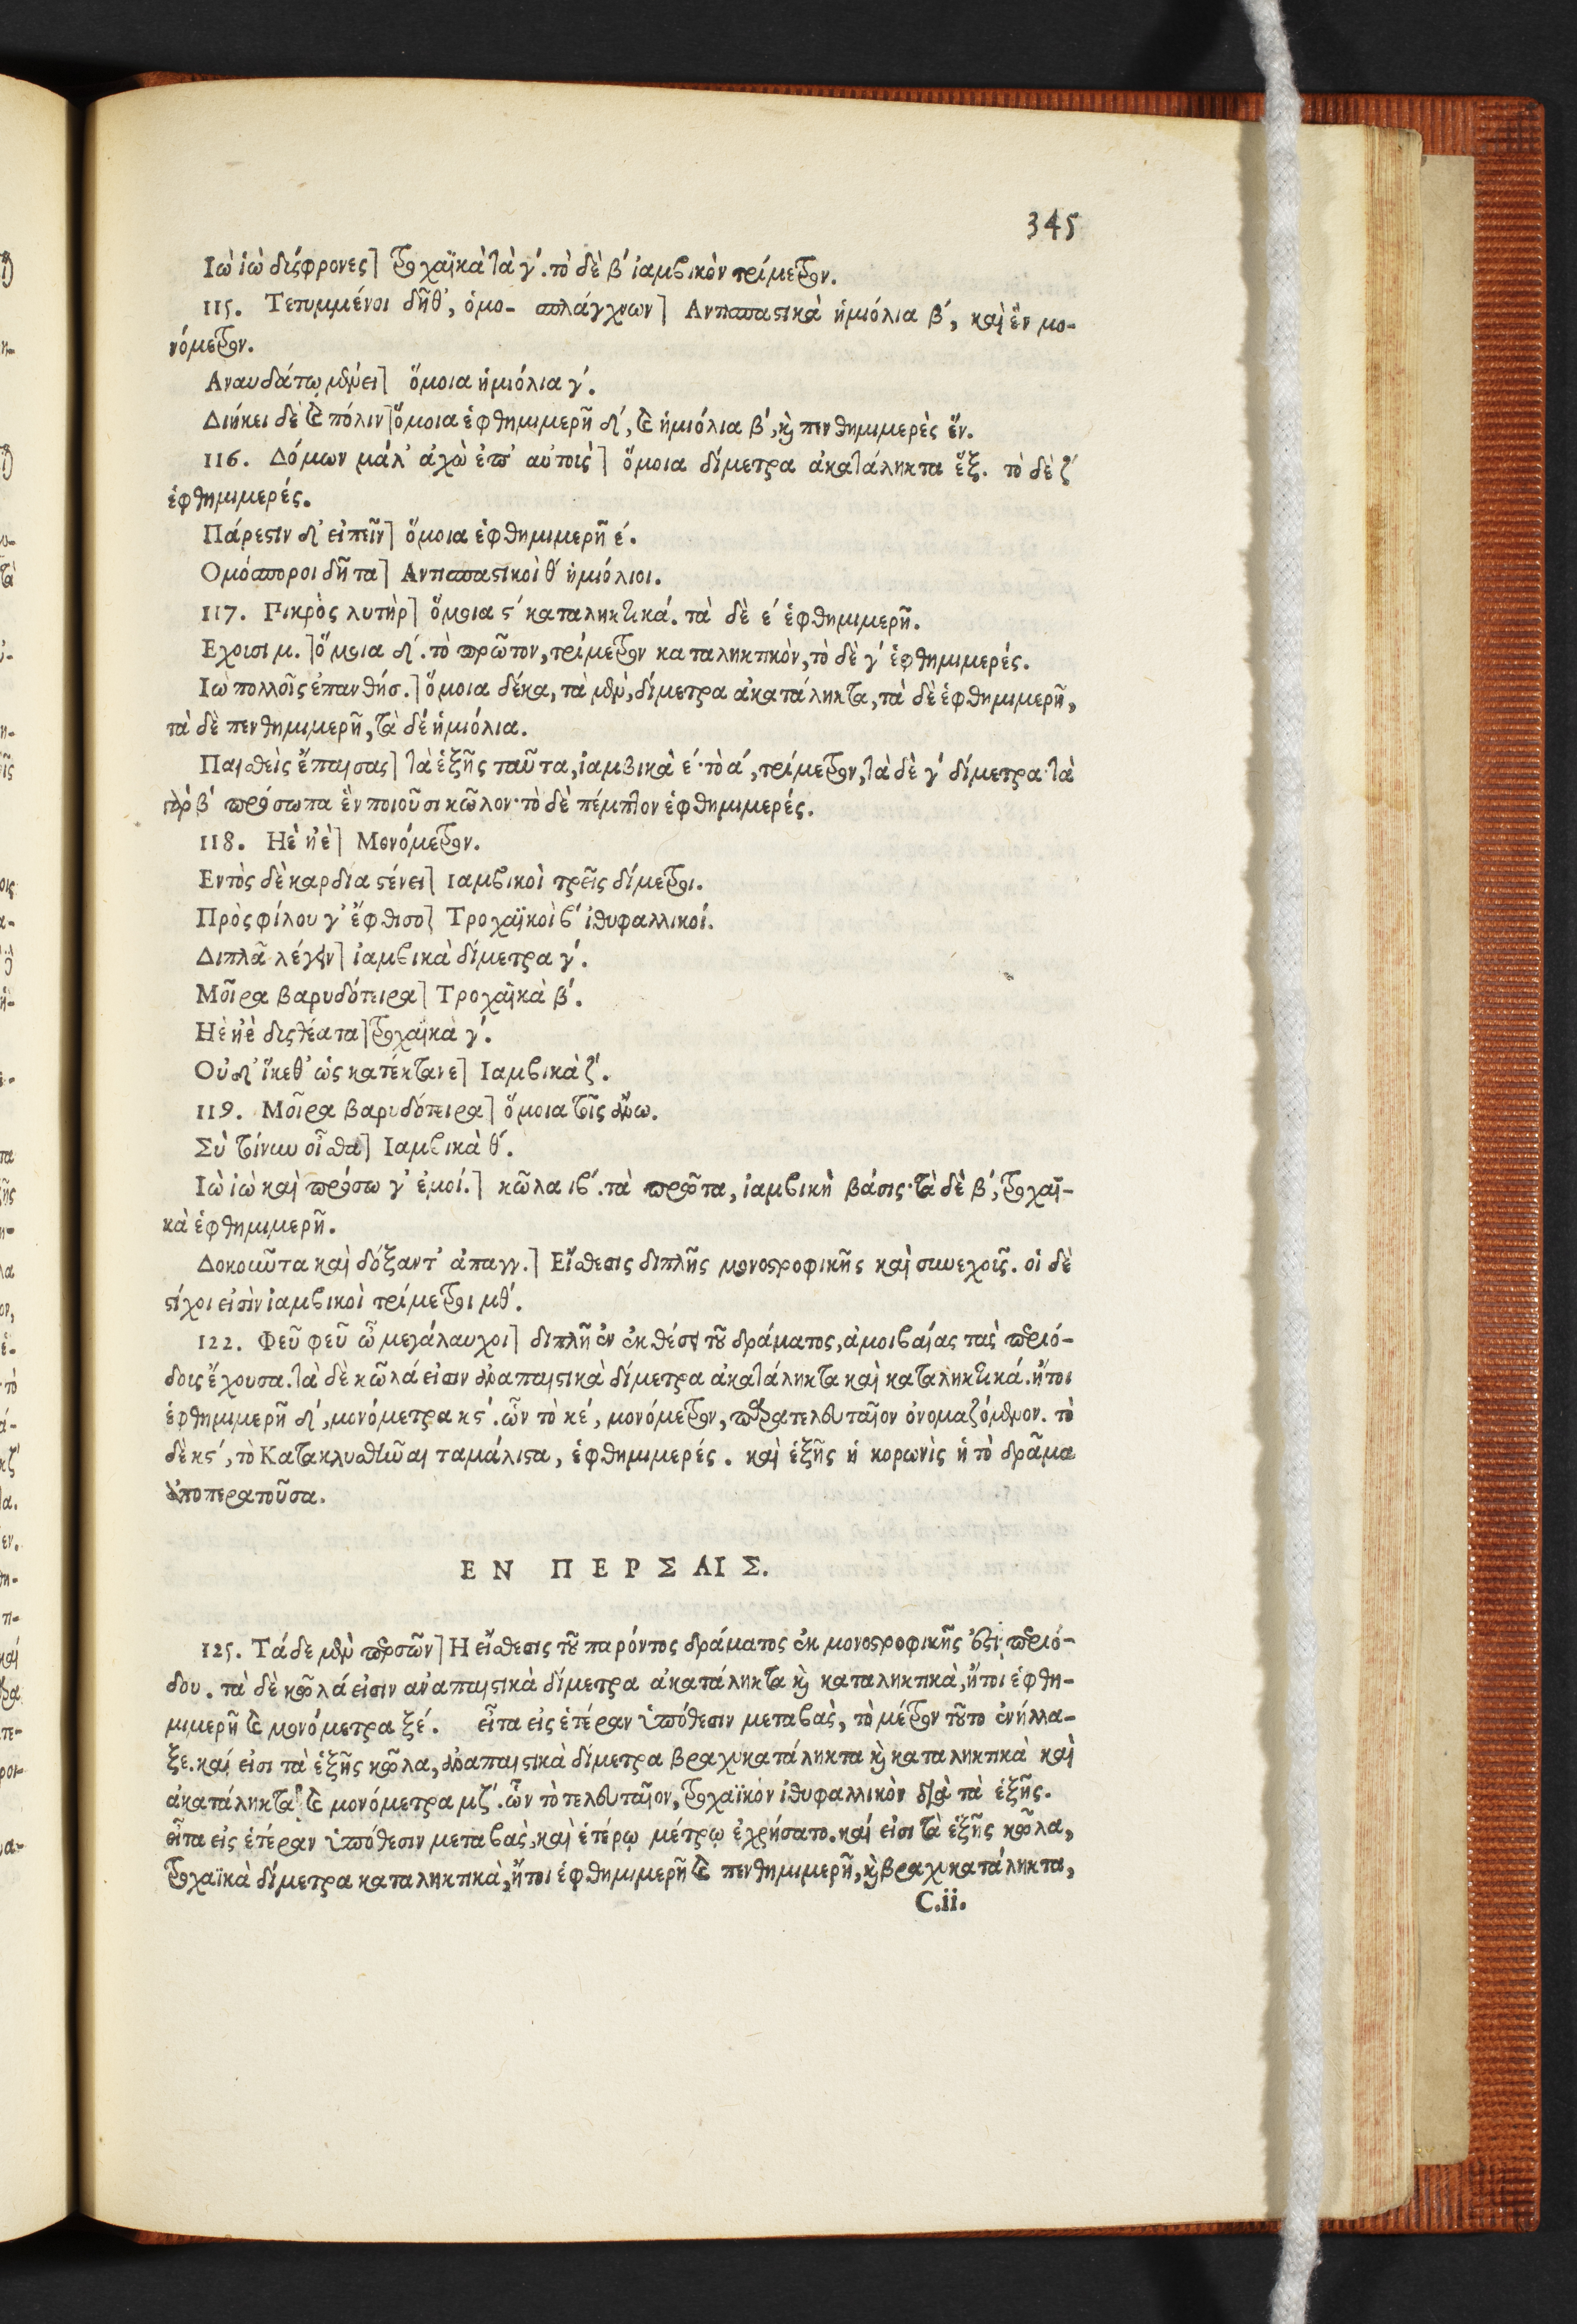 345
Ιὼ ἰὼ δύσφρονες] τροχαϊκὰ τὰ γ΄. τὸ δὲ β΄ ἰαμβικὸν τρίμετρον.
115. Τετυμμένοι δῆθ᾽, ὁμο- σπλάγχνων] Αντισπαστικὰ ἡμιόλια β΄, καὶ ἓν μο-
νόμετρον.
Αναυδάτῳ μένει] ὅμοια ἡμιόλια γ΄.
Διήκει δὲ καὶ πόλιν] ὅμοια ἑφθημιμερῆ δ΄, καὶ ἡμιόλια β΄, καὶ πενθημιμερὲς ἕν.
116. Δόμων μάλ᾽ ἀχὼ ἐπ᾽ αὐτοὶς] ὅμοια δίμετρα ἀκατάληκτα ἕξ. τὸ δὲ ζ΄
ἑφθημιμερές.
Πάρεστιν δ᾽ εἰπεῖν] ὅμοια ἑφθημιμερῆ ε΄.
Ομόσποροι δῆτα] Αντισπαστικοὶ θ΄ ἡμιόλιοι.
117. Πικρὸς λυτὴρ] ὅμοια ϛ΄ καταληκτικά. τὰ δὲ ε΄ ἑφθημιμερῆ.
Εχοισι μ.] ὅμοια δ΄. τὸ πρῶτον, τρίμετρον καταληκτικὸν, τὸ δὲ γ΄ ἑφθημιμερές.
Ιὼ πολλοῖς ἐπανθήσ.] ὅμοια δέκα, τὰ μὲν, δίμετρα ἀκατάληκτα, τὰ δὲ ἑφθημιμερῆ,
τὰ δὲ πενθημιμερῆ, τὰ δὲ ἡμιόλια.
Παισθεὶς ἔπαισας] τὰ ἑξῆς ταῦτα, ἰαμβικὰ ε΄· τὸ α΄, τρίμετρον, τὰ δὲ γ΄ δίμετρα· τὰ
γὰρ β΄ πρόσωπα ἓν ποιοῦσι κῶλον· τὸ δὲ πέμπτον ἑφθημιμερές.
118. Ηὲ ἠὲ] Μονόμετρον.
Εντὸς δὲ καρδία στένει] Ιαμβικοὶ τρεῖς δίμετροι.
Πρὸς φίλου γ᾽ ἔφθισο] Τροχαϊκοὶ β΄ ἰθυφαλλικοί.
Διπλᾶ λέγειν] ἰαμβικὰ δίμετρα γ΄.
Μοῖρα βαρυδότειρα] Τροχαϊκὰ β΄.
Ηὲ ἠὲ δυςθέατα] τροχαϊκὰ γ΄.
Οὐδ᾽ ἵκεθ᾽ ὡς κατέκτανε] Ιαμβικὰ ζ΄.
119. Μοῖρα βαρυδότειρα] ὅμοια τοῖς ἄνω.
Σὺ τοίνυν οἶσθα] Ιαμβικὰ θ΄.
Ιὼ ἰὼ καὶ πρόσω γ᾽ ἐμοί.] κῶλα ιβ΄. τὰ πρῶτα, ἰαμβικὴ βάσις· τὰ δὲ β΄, τροχαϊ-
κὰ ἑφθημιμερῆ.
Δοκοῦντα καὶ δόξαντ᾽ ἀπαγγ.] Εἴσθεσις διπλῆς μονοστροφικῆς καὶ συνεχοῖς. οἱ δὲ
στίχοι εἰσὶν ἰαμβικοὶ τρίμετροι μθ΄.
122. Φεῦ φεῦ ὦ μεγάλαυχοι] διπλῆ ἐν ἐκθέσει τοῦ δράματος, ἀμοιβαίας τὰς περιό-
δοις ἔχουσα. τὰ δὲ κῶλά εἰσιν ἀναπαιστικὰ δίμετρα ἀκατάληκτα καὶ καταληκτικά. ἤτοι
ἑφθημιμερῆ δ΄, μονόμετρα κϛ΄. ὧν τὸ κε΄, μονόμετρον, παρατελευταῖον ὀνομαζόμενον. τὸ
δὲ κϛ΄, τὸ Κατακλυσθῆναι ταμάλιστα, ἑφθημιμερές. καὶ ἑξῆς ἡ κορωνὶς ἡ τὸ δρᾶμα
ἀποπερατοῦσα.
ΕΝ ΠΕΡΣΑΙΣ.
125. Τάδε μὲν περσῶν] Η εἴσθεσις τοῦ παρόντος δράματος ἐκ μονοστροφικῆς ἐστὶ περιό-
δου. τὰ δὲ κῶλά εἰσιν ἀναπαιστικὰ δίμετρα ἀκατάληκτα καὶ καταληκτικὰ, ἤτοι ἑφθη-
μιμερῆ καὶ μονόμετρα ξε΄. εἶτα εἰς ἑτέραν ὑπόθεσιν μεταβὰς, τὸ μέτρον τοῦτο ἐνήλλα-
ξε. καί εἰσι τὰ ἑξῆς κῶλα, ἀναπαιστικὰ δίμετρα βραχυκατάληκτα καὶ καταληκτικὰ καὶ
ἀκατάληκτα καὶ μονόμετρα μζ΄. ὧν τὸ τελευταῖον, τροχαϊκὸν ἰθυφαλλικὸν διὰ τὰ ἑξῆς.
εἶτα εἰς ἑτέραν ὑπόθεσιν μεταβὰς, καὶ ἑτέρῳ μέτρῳ ἐχρήσατο. καί εἰσι τὰ ἑξῆς κῶλα,
τροχαϊκὰ δίμετρα καταληκτικὰ, ἤτοι ἑφθημιμερῆ καὶ πενθημιμερῆ, καὶ βραχυκατάληκτα,
C.ii.